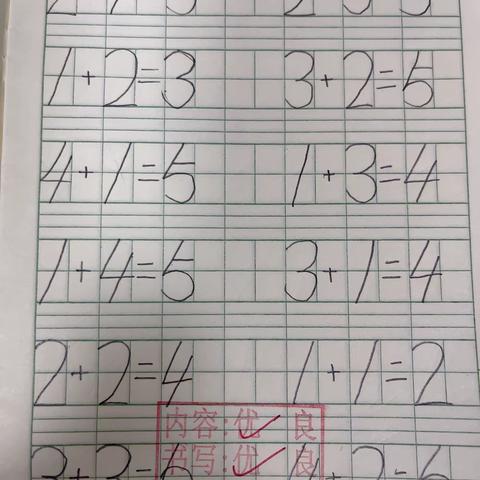 1+2=3 3+2=5
4+1=5 1+3=4
1+4=5 3+1=4
2+2=4 1+1=2
内容:优✓ 良
3+3=6 4+2=6
书写:优✓ 良